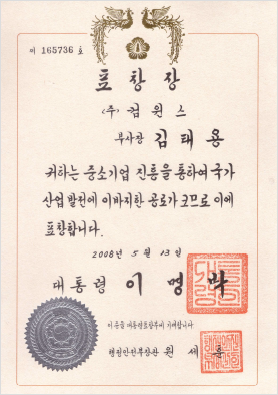 제 165736 호
표창장
(주) 컴윈스
부사장 김태용
귀하는 중소기업 진흥을 통하여 국가
산업발전에 이바지한 공로가 크므로 이에
표창합니다.
2008년 5월 13일
대통령 이명박
이 증을 대통령표창부에 기재합니다.
행정안전부장관 원세훈